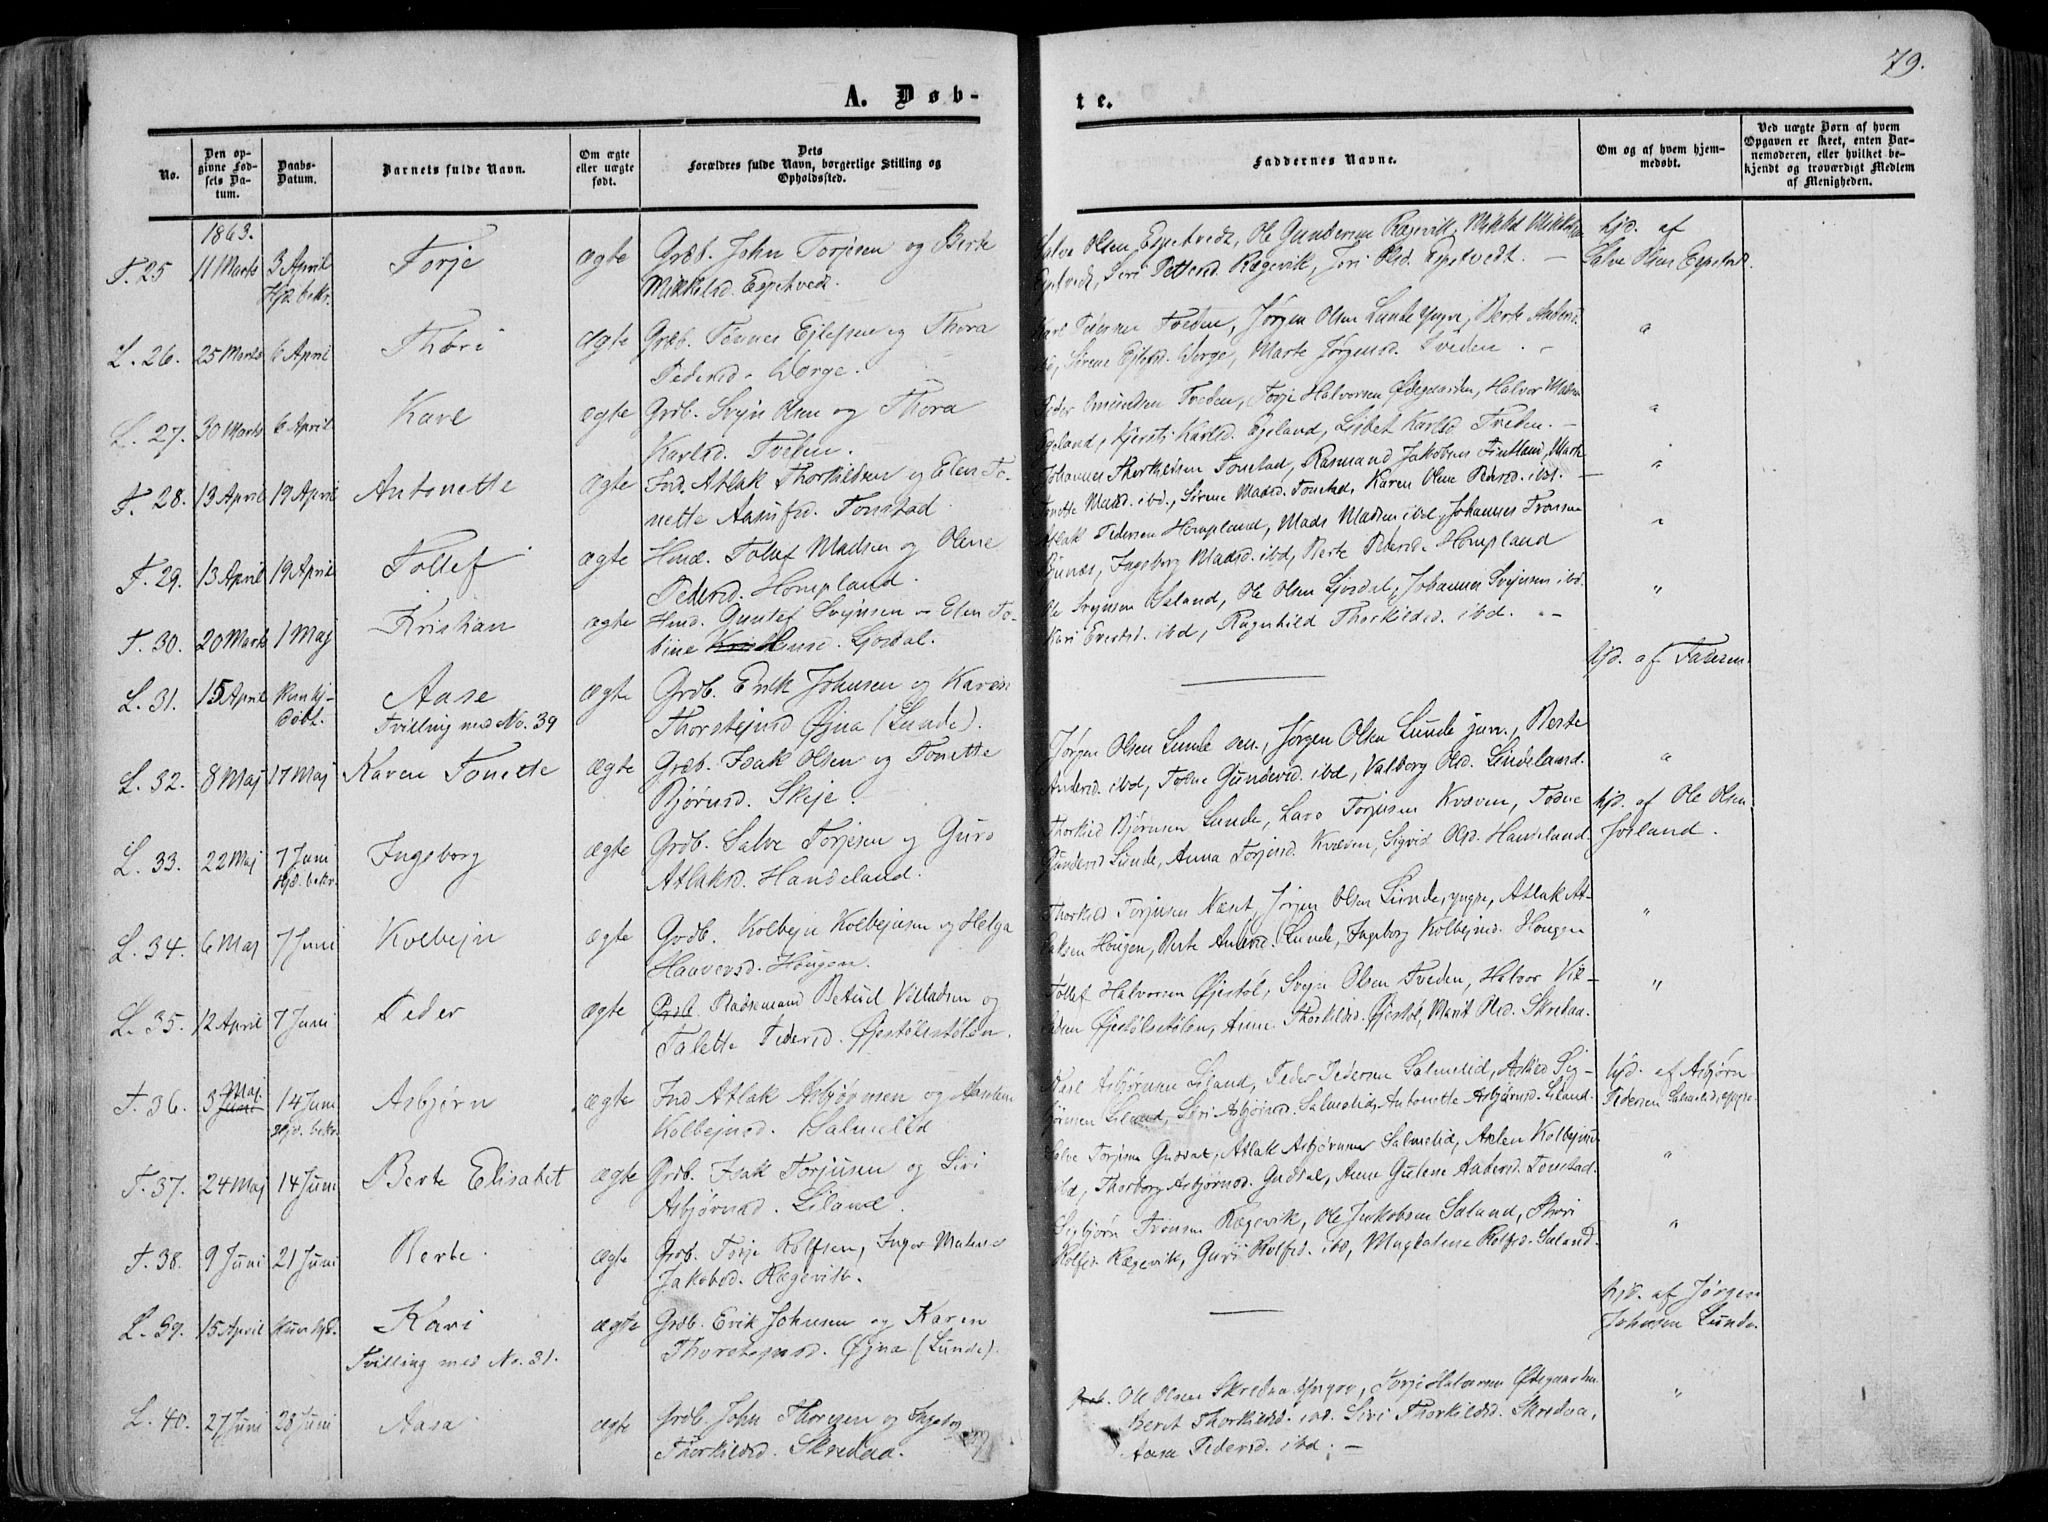 79.
A. Døb-
te.
No.
Den op-
givne Fød-
sels Da-
tum.
Daabs-
Datum.
Barnets fulde Navn.
Om ægte
eller uægte
født.
Dets
Forældres fulde Navn, borgerlige Stilling og
Opholdssted.
Faddernes Navne.
Om og af hvem hjem-
medøbt.
Ved uægte Børn af hvem
Opgaven er skeet, enten Bar-
nemoderen, eller hvilket be-
kjendt og troværdigt Medlem
af Menigheden.
1863.
T. 25 11 Marts 3 April Torje ægte Grdb. John Torjesen og Berte
Hjd. bekr. Mikkelsd. Espetvedt.
Salve Olsen Espetvedt, Ole Gundersen Rægevik, Mikkel Mikkelsen hjd. af
Espetvedt, Siri Pettersd. Rægevik, Jori Olsd. Espetvedt. — Salve Olsen Espetvedt.
L. 26. 25 Marts 6 April Thori ægte Grdb. Tønnes Ejlefsen og Thora
Pedersd. Dorge.
Karl Pedersen Tveden, Jørgen Olsen Lunde yngre, Berte Andersd. "
ibd, Sirene Ejlefsd. Dorge, Marte Jørgensd. Tveden. —
L. 27. 30 Marts 6 April Karl ægte Grdb. Svejn Olsen og Thora
Karlsd. Tveden.
Peder Omundsen Tveden, Torje Halvorsen Ødegaarden, Halvor "
Egeland, Kjersti Karlsd. Egeland, Lisbet Karlsd. Tveden. —
T. 28. 13 April 19 April Antonette ægte Ind. Atlak Thorkildsen og Elen To-
nette Aanufsd. Tonstad.
Johannes Thorkildsen Tonstad, Rasmund Jakobsen Fintland, Marte "
Tonette Madsd. ibd., Sirene Madsd. Tonstad, Karen Oline Pedersd. ibd. —
T. 29. 13 April 19 April Tollef ægte Hmd. Tollef Madsen og Oline
Pedersd. Hompland.
Atlak Pedersen Hompland, Mads Madsen ibd, Johannes Tronsen "
Bjunes, Ingeborg Madsd. ibd, Berte Pedersd. Hompland
T. 30. 20 Marts 1 Maj Kristian ægte Hmd. Guntef Svejnsen – Elen To-
bine Gjosdal.
Ole Svejnsen Seland, Ole Olsen Gjosdal, Johannes Svejnsen ibd. "
Kari Evertsd. ibd, Ragnhild Thorkildsd. ibd. —
L. 31. 15 April Kun hj- Aase ægte Grdb. Erik Johnsen og Karen
døbt. Tvilling med No. 39 Thorstejnsd Øjna (Lunde).
hjd. af Faderen.
L. 32. 8 Maj 17 Maj Karen Tonette ægte Grdb. Isak Olsen og Tonette
Bjørnsd. Skeje.
Jørgen Olsen Lunde sen., Jørgen Olsen Lunde jun., Berte "
Andersd. ibd, Tobne Gundersd. ibd, Valborg Olsd. Lindeland.
L. 33. 22 Maj 7 Juni Ingeborg ægte Grdb. Salve Torjesen og Guro
Hjd. bekr. Atlaksd. Handeland.
Thorkild Bjørnsen Lunde, Lars Torjusen Kvæven, Tobne hjd. af Ole Olsen
Gundersd Lunde, Anna Torjusd. Kvæven, Sigrid Olsd. Handeland Josland.
L. 34. 6 Maj 7 Juni Kolbejn ægte Grdb. Kolbejn Kolbejnsen og Helga
Haaversd. Hougen.
Thorkild Torjusen Næset, Jørgen Olsen Lunde yngre, Atlak At- "
laksen Hougen, Berte Andersd. Lunde, Ingeborg Kolbejnsd. Hougen
L. 35. 12 April 7 Juni Peder ægte Grdb. Pladsemand Betuel Villadsen og
Talette Pedersd. Øjestølstølen.
Tollef Halvorsen Øjestøl, Svejn Olsen Tveden, Halvor Vil- "
ladsen Øjestølstølen, Anne Thorkildsd. Øjestøl, Marit Olsd. Skredaa.
T. 36. 3 Maj Juni 14 Juni Asbjørn ægte Ind Atlak Asbjørnsen og Aaselen
Hjd. bekr. Kolbejnsd. Salmelid
Karl Asbjørnsen Liland, Peder Pedersen Salmelid, Asbjørn hjd. af Asbjørn
Liland, Siri Asbjørnsd. Salmelid, Antonette Asbjørnsd. Liland. Pedersen Salmelid, yngre.
T. 37. 24 Maj 14 Juni Berte Elisabet ægte Grdb. Isak Torjusen og Siri
Asbjørnsd. Liland.
Salve Torjusen Gusdal, Atlak Asbjørnsen Salmelid, Aselen Kolbejnsd. "
ibd, Thorborg Asbjørnsd. Gusdal, Anne Guline Andersd. Tonstad.
T. 38. 9 Juni 21 Juni Berte. ægte Grdb. Torje Rolfsen, Inger Malene
Jakobsd. Rægevik.
Sigbjørn Tronsen Rægevik, Ole Jakobsen Seland, Thori "
Rolfsd. Rægevik, Guri Rolfsd. ibd, Magdalene Rolfsd. Seland.
L. 39. 15 April Kun hjd. Kari ægte Grdb. Erik Johnsen og Karen
Tvilling med No. 31. Thorstejnsd. Øjna (Lunde).
hjd. af Jørgen
Johnsen Lunde.
L. 40. 27 Juni 28 Juni Aasa ægte Grdb. John Thoresen og Ingeborg
Thorkildsd. Skredaa.
Ole Olsen Skredaa yngre, Torje Halvorsen Ødegaarden "
Beret Thorkildsd. ibd. Siri Thorkildsd. Skredaa,
Aasa Pedersd. ibd. —